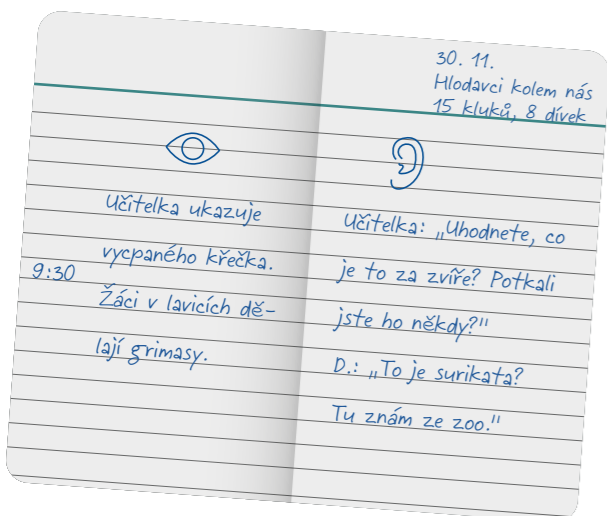 30. 11.
Hlodavci kolem nás
15 kluků, 8 dívek
Učitelka ukazuje
vycpaného křečka.
9:30
Žáci v lavicích dě-
lají grimasy.
Učitelka: „Uhodnete, co
je to za zvíře? Potkali
jste ho někdy?"
D.: „To je surikata?
Tu znám ze zoo."